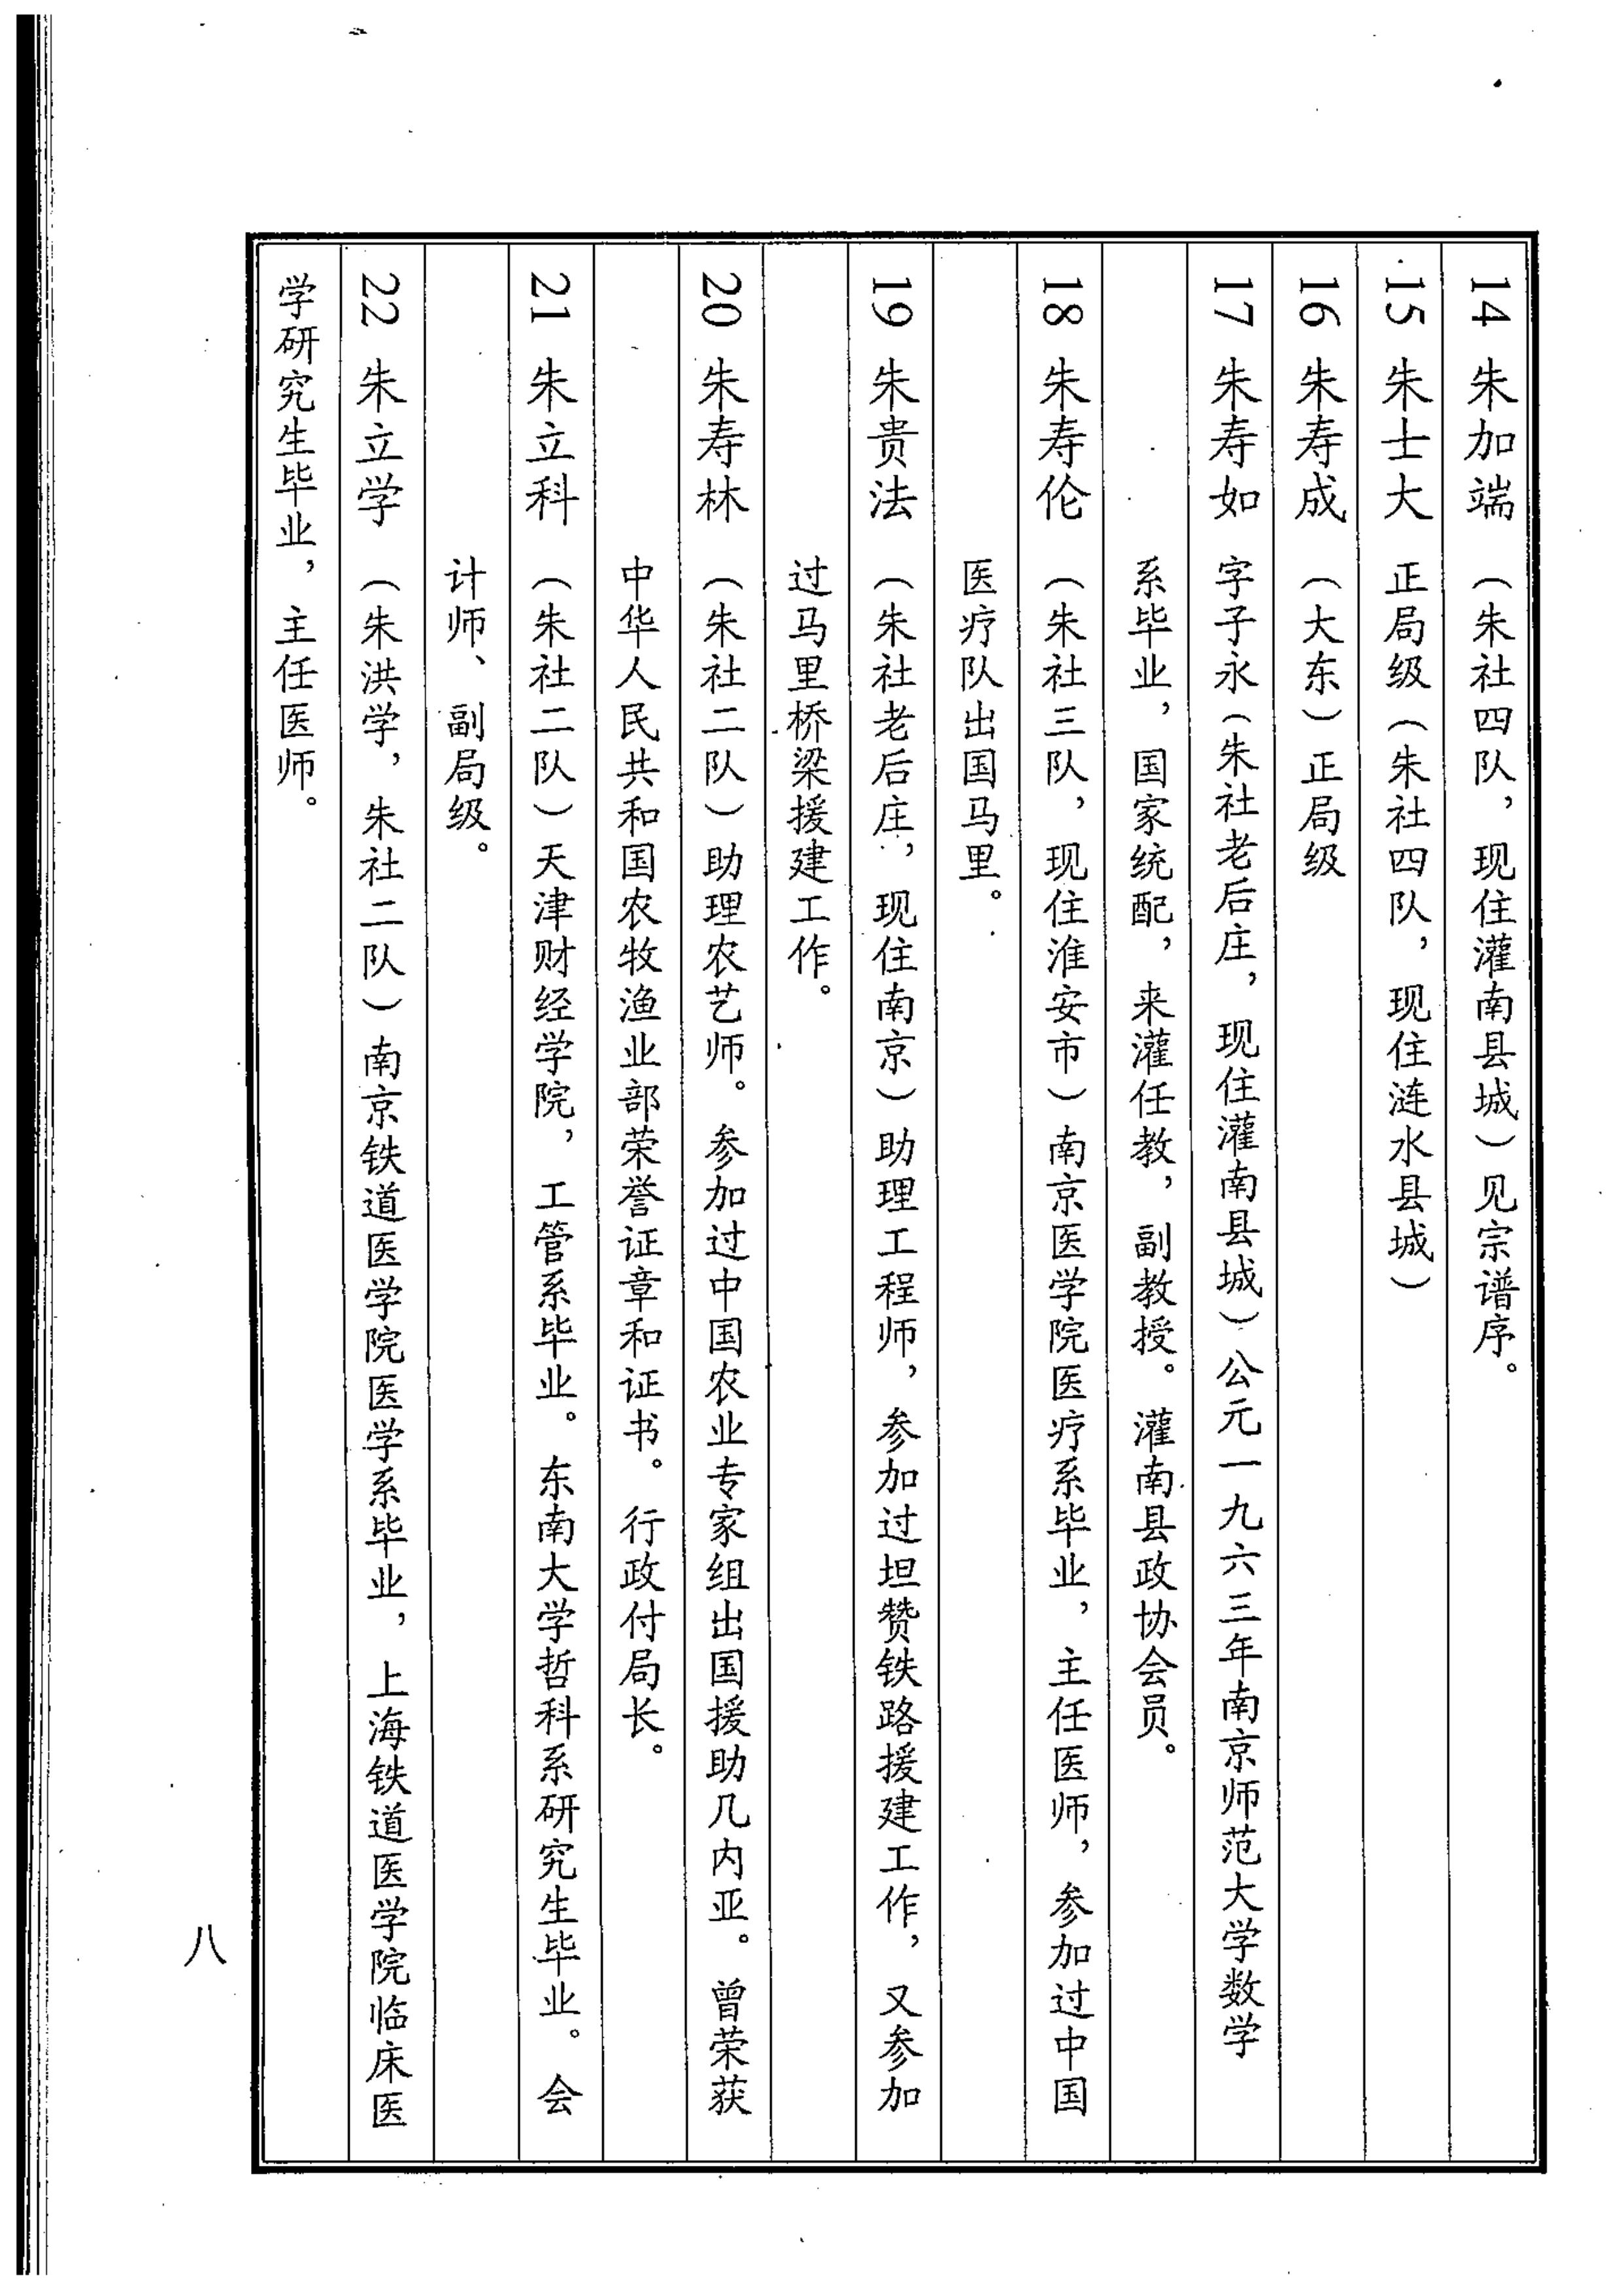 14 朱加端 （朱社四队，现住灌南县城）见宗谱序。
15 朱士大 正局级（朱社四队，现住涟水县城）
16 朱寿成 （大东）正局级
17 朱寿如 字子永（朱社老后庄，现住灌南县城）公元一九六三年南京师范大学数学
系毕业，国家统配，来灌任教，副教授。灌南县政协会员。
18 朱寿伦 （朱社三队，现住淮安市）南京医学院医疗系毕业，主任医师，参加过中国
医疗队出国马里。
19 朱贵法 （朱社老后庄，现住南京）助理工程师，参加过坦赞铁路援建工作，又参加
过马里桥梁援建工作。
20 朱寿林 （朱社二队）助理农艺师。参加过中国农业专家组出国援助几内亚。曾荣获
中华人民共和国农牧渔业部荣誉证章和证书。行政付局长。
21 朱立科 （朱社二队）天津财经学院，工管系毕业。东南大学哲科系研究生毕业。会
计师、副局级。
22 朱立学 （朱洪学，朱社二队）南京铁道医学院医学系毕业，上海铁道医学院临床医
学研究生毕业，主任医师。
八